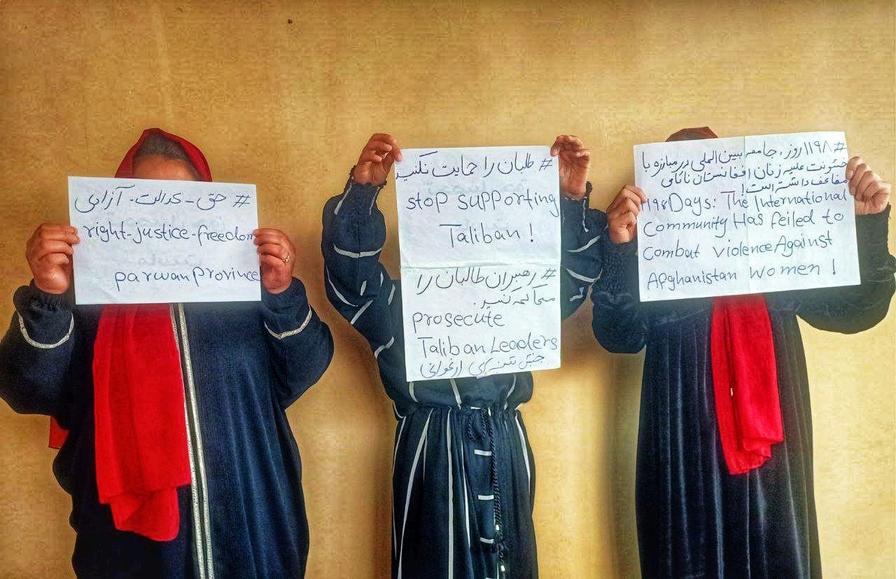 # حق - عدالت - آزادی
right-justice-freedom
parwan province
# طلبان را حمایت نکنید
stop supporting
Taliban !
# رهبران طالبان را
محاکمه کنید.
prosecute
Taliban Leaders
جنبش
# ۱۱۹۸ روز، جامعه بین المللی در مبارزه با
خشونت علیه زنان افغانستان ناکامی
داشته است!
1198 Days: The International
Community Has feiled to
Combat violence Against
Afghanistan women !